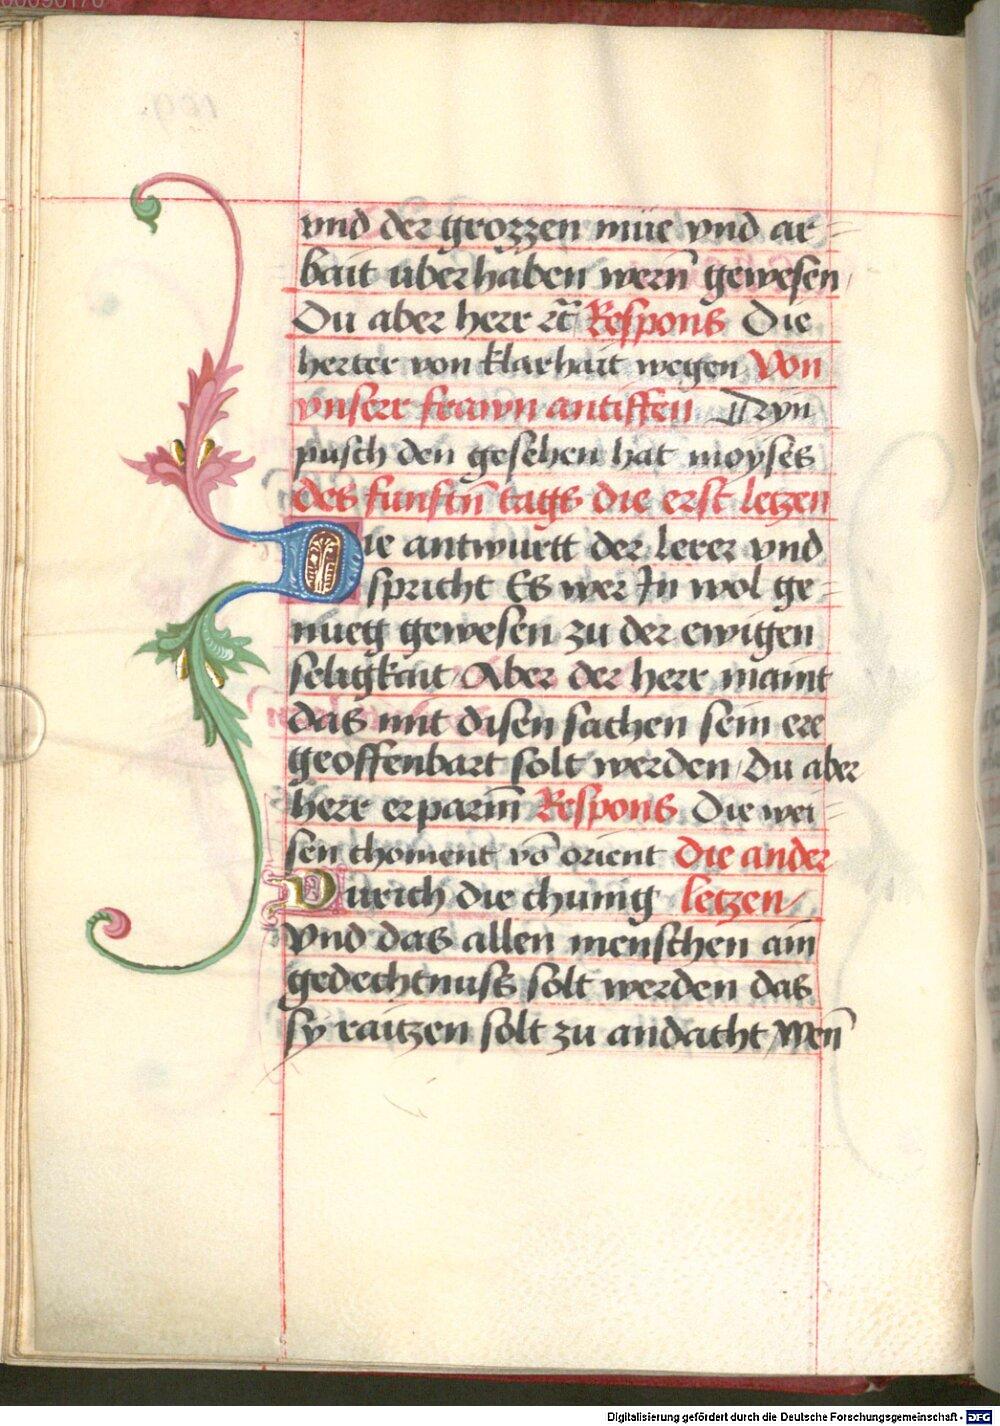 vnd der grozzen müe vnd ar=
bait uberhaben wern̄ gewesen
Du aber herr ꝛc̄ Respons Die
herter von klarhait wegen Von
vnserr frawn antiffen Dyn
pusch den gesehen hat moyses
des funftn̄ tags die erst letzen
Die antwurtt der lerer vnd
spricht Es wer In wol ge=
nueg gewesen zu der ewigen
seligkait / Aber der herr maint
das mit disen sachen sein ere
geoffenbart solt werden / Du aber
herr erparm̄ Respons Die wei=
sen choment vō orient die ander
Durich die chunig letzen /
Vnd das allen menschen ain
gedechtnuss solt werden das
sy raitzen solt zu andacht / Wen̄
Digitalisierung gefördert durch die Deutsche Forschungsgemeinschaft - DFG